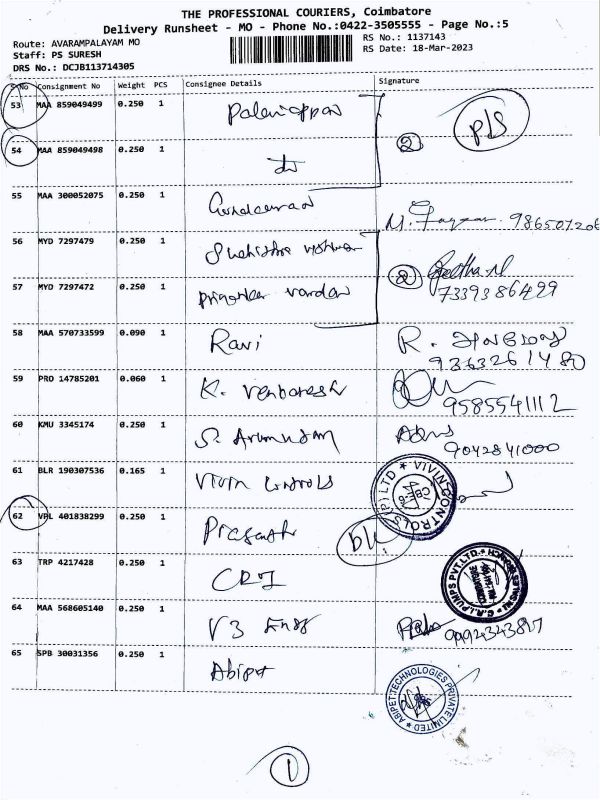 THE PROFESSIONAL COURIERS, Coimbatore
Delivery Runsheet - MO - Phone No.:0422-3505555 - Page No.:5
Route: AVARAMPALAYAM MO
Staff: PS SURESH
DRS No.: DCJB113714305
RS No.: 1137143
RS Date: 18-Mar-2023
S No Consignment No Weight PCS Consignee Details Signature
53 MAA 859049499 0.250 1 Palaniappan
P/S
54 MAA 859049498 0.250 1 2
55 MAA 300052075 0.250 1
M.
56 MYD 7297479 0.250 1 Geetha.M
57 MYD 7297472 0.250 1 2 7339386499
58 MAA 570733599 0.090 1 Ravi R.
9363261480
59 PRO 14785201 0.060 1 K. Venkatesh
9585541112
60 KMU 3345174 0.250 1 S. Arumugam
9042841000
61 BLR 190307536 0.165 1 Vivin Controls VIVIN CONTROLS (P) LTD
62 VPL 401838299 0.250 1 Prasanth
63 TRP 4217428 0.250 1 CRI C.R.I. PUMPS PVT.LTD.
64 MAA 568605140 0.250 1 V3 Engg
65 SPB 30031356 0.250 1 Abipet
ABIPET TECHNOLOGIES PRIVATE LIMITED
1